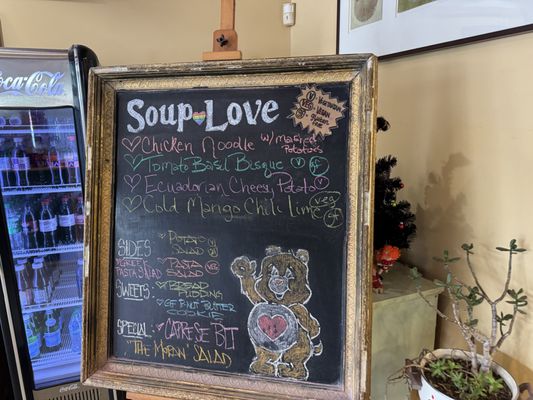 Coca-Cola
Soup Love
V Vegetarian
Veg Vegan
GF Gluten Free
Chicken Noodle w/ Mashed Potatoes
Tomato Basil Bisque V GF
Ecuadorian Cheesy Potato V
Cold Mango Chili Lime Veg GF
SIDES
Potato Salad
Pasta Salad
SWEETS:
Bread Pudding
GF Peanut Butter Cookie
SPECIAL:
CAPRESE BLT
"The Moran" Salad